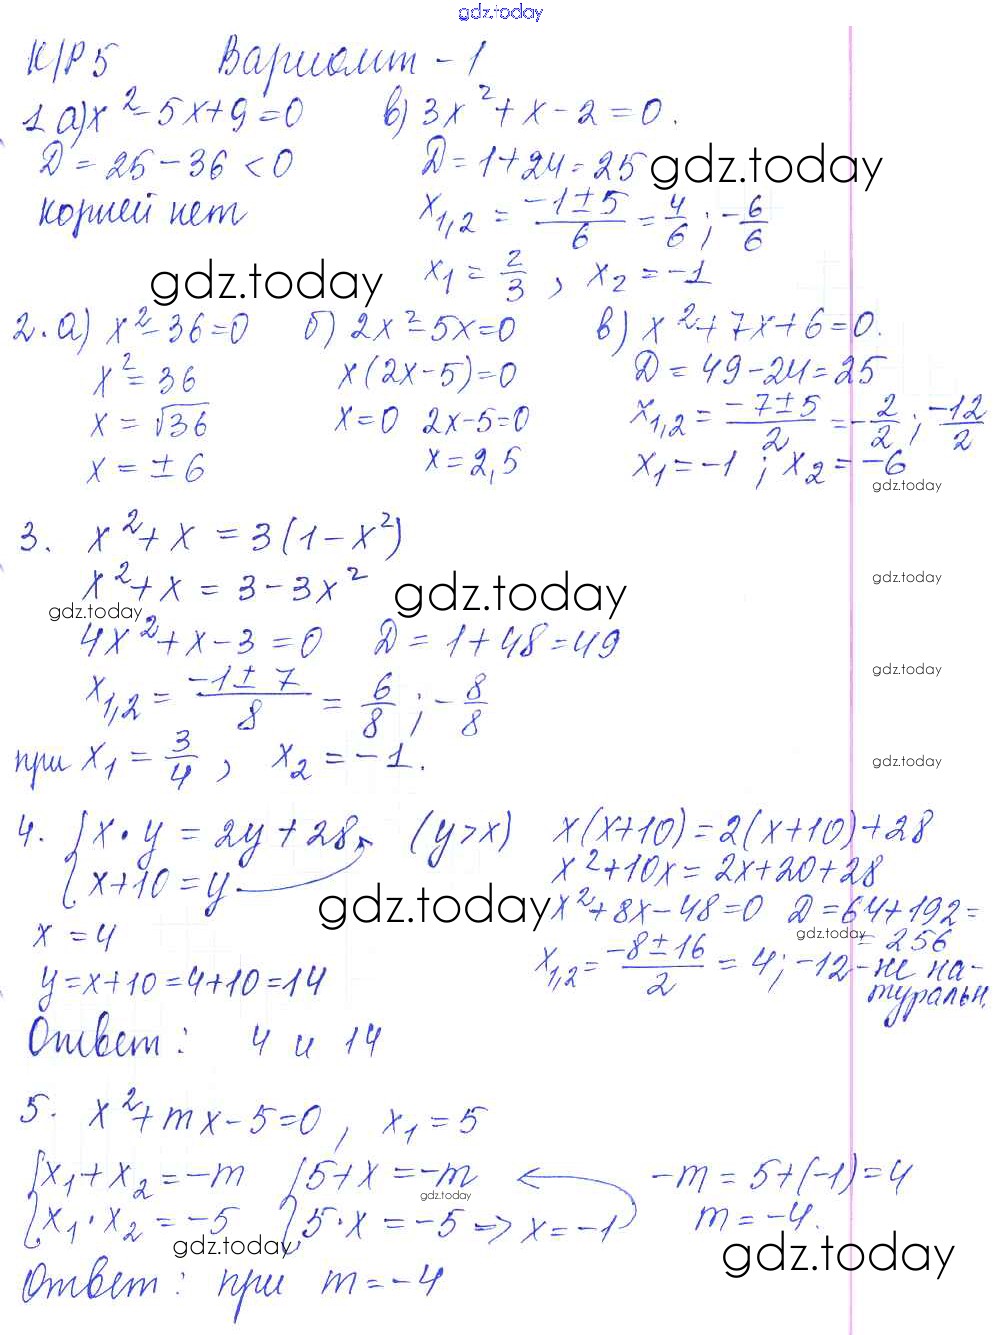 gdz.today
К/Р 5 Вариант - 1
1. а) x² - 5x + 9 = 0 в) 3x² + x - 2 = 0.
D = 25 - 36 < 0 D = 1 + 24 = 25 gdz.today
корней нет x₁,₂ = (-1 ± 5)/6 = 4/6 ; -6/6
gdz.today x₁ = 2/3 , x₂ = -1
2. а) x² - 36 = 0 б) 2x² - 5x = 0 в) x² + 7x + 6 = 0.
x² = 36 x(2x - 5) = 0 D = 49 - 24 = 25
x = √36 x = 0 2x - 5 = 0 x₁,₂ = (-7 ± 5)/2 = -2/2 ; -12/2
x = ± 6 x = 2,5 x₁ = -1 ; x₂ = -6
gdz.today
3. x² + x = 3(1 - x²)
x² + x = 3 - 3x² gdz.today gdz.today
gdz.today
4x² + x - 3 = 0 D = 1 + 48 = 49
gdz.today
x₁,₂ = (-1 ± 7)/8 = 6/8 ; -8/8
при x₁ = 3/4 , x₂ = -1. gdz.today
4. { x · y = 2y + 28 (y > x) x(x + 10) = 2(x + 10) + 28
{ x + 10 = y x² + 10x = 2x + 20 + 28
gdz.today x² + 8x - 48 = 0 D = 64 + 192 =
x = 4 gdz.today = 256
y = x + 10 = 4 + 10 = 14 x₁,₂ = (-8 ± 16)/2 = 4 ; -12 - не на-
туральн.
Ответ: 4 и 14
5. x² + mx - 5 = 0 , x₁ = 5
{ x₁ + x₂ = -m { 5 + x = -m ← -m = 5 + (-1) = 4
gdz.today
{ x₁ · x₂ = -5 { 5 · x = -5 => x = -1 m = -4.
gdz.today gdz.today
Ответ: при m = -4